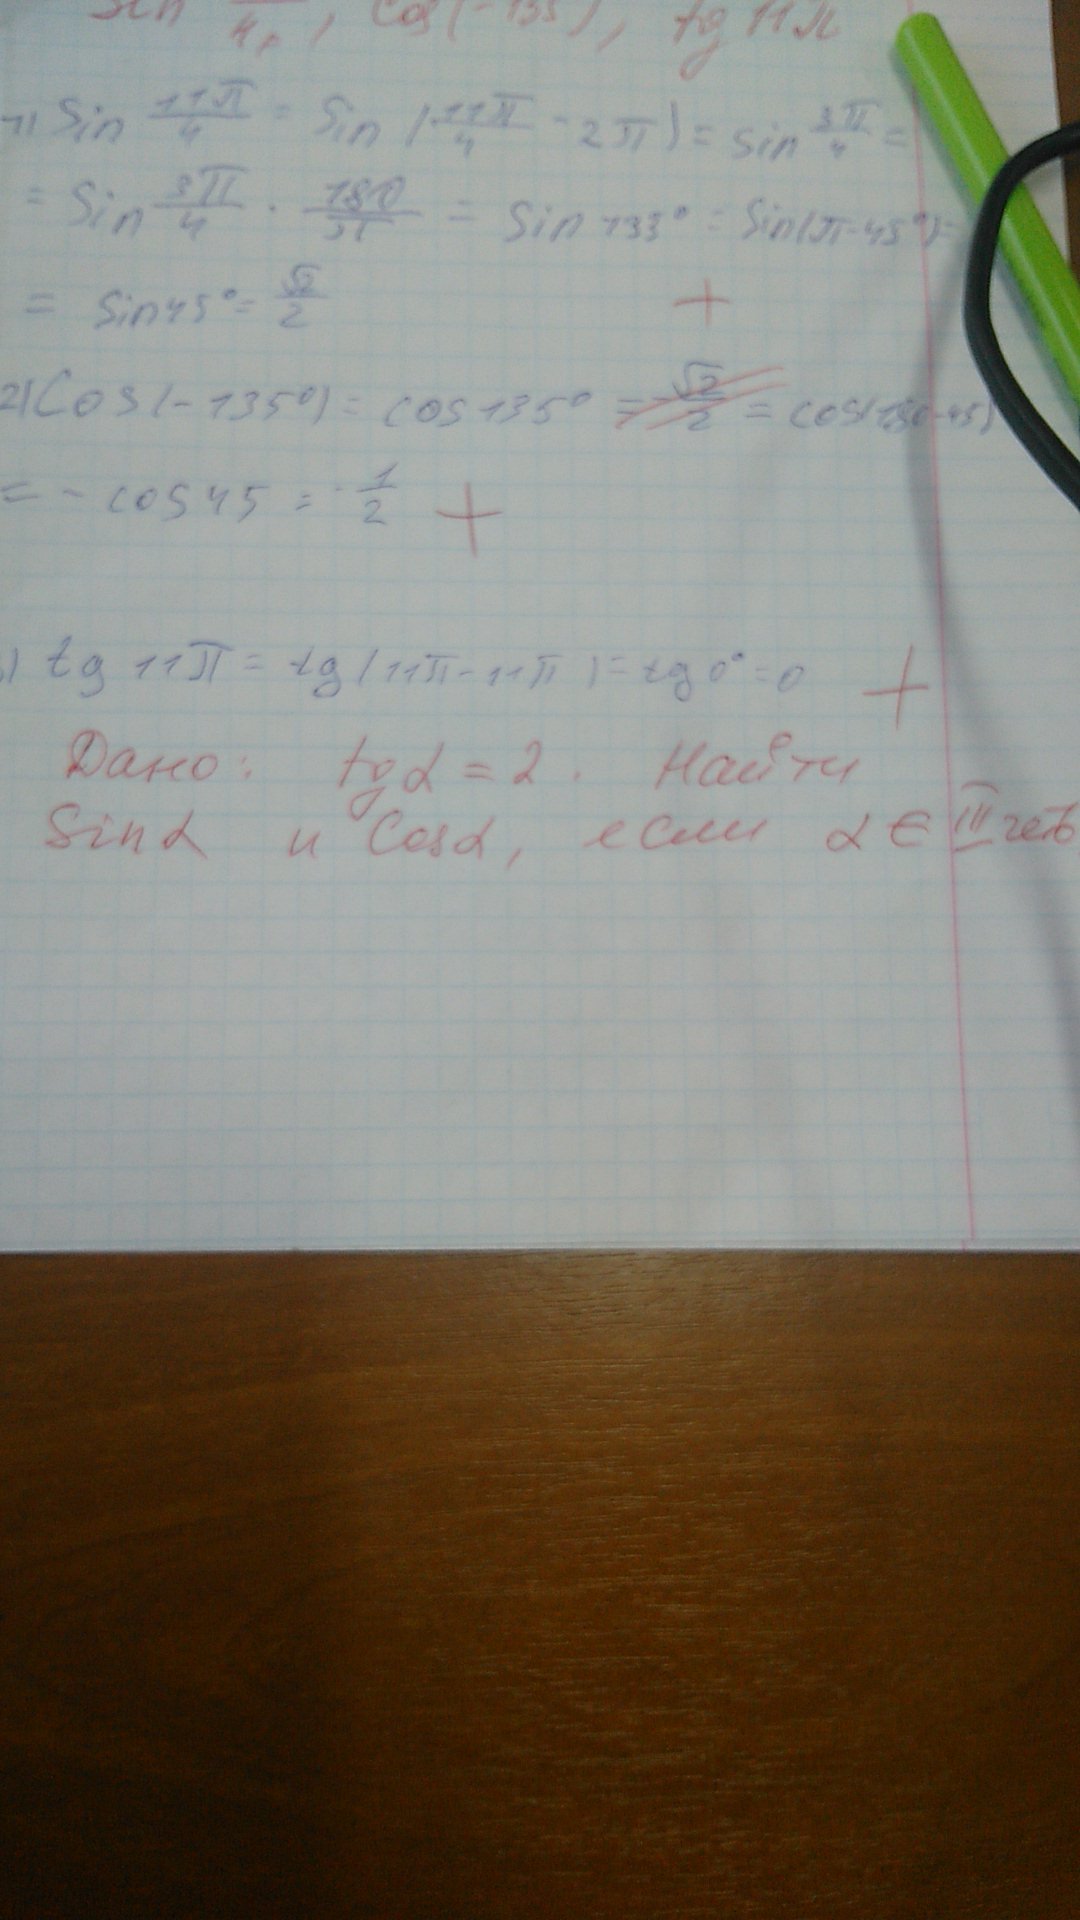 sin 4, cos(-135), tg 11π
1) Sin 11π/4 = Sin (11π/4 - 2π) = sin 3π/4 =
= Sin 3π/4 · 180/π = Sin 133° = Sin(π-45°) =
= Sin45° = √2/2 +
2) Cos(-135°) = cos 135° = √2/2 = cos(180-45)
= - cos 45 = -1/2 +
) tg 11π = tg(11π-11π) = tg 0° = 0 +
Дано: tgα = 2. Найти
Sinα и Cosα, если α ∈ III четв